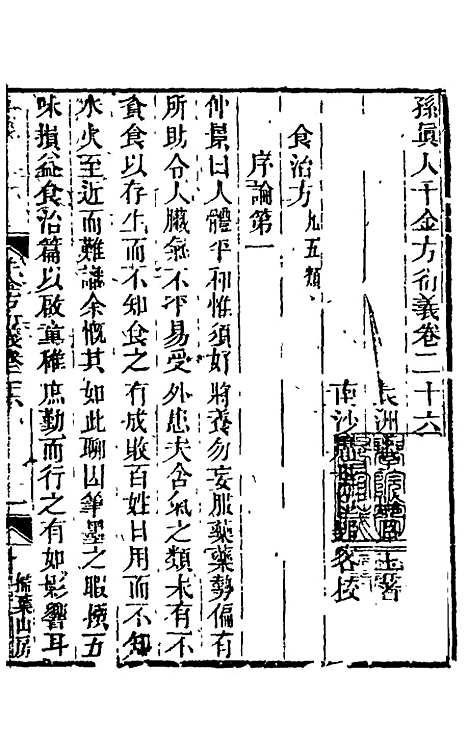 孫眞人千金方衍義卷二十六
長洲
南沙
著
校
食治方凡五類
序論第一
仲景曰人體平和惟須好將養勿妄服藥藥勢偏有
所助令人臟氣不平易受外患夫含氣之類未有不
資食以存生而不知食之有成敗百姓日用而不知
水火至近而難識余慨其如此聊因筆墨之暇撰五
味損益食治篇以啟童稚庶勤而行之有如影響耳
千金方衍義卷二十六
掃葉山房